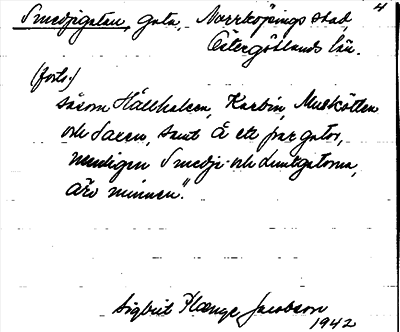 4
Smedjegatan, gata, Norrköpings stad,
Östergötlands län.
(forts.)
såsom Hällhaken, Karbin, Muskötten
och Saxen, samt å ett par gator,
nemligen Smedje- och Luntgatorna,
äro minnen".
Sigbrit Plænge Jacobson
1942